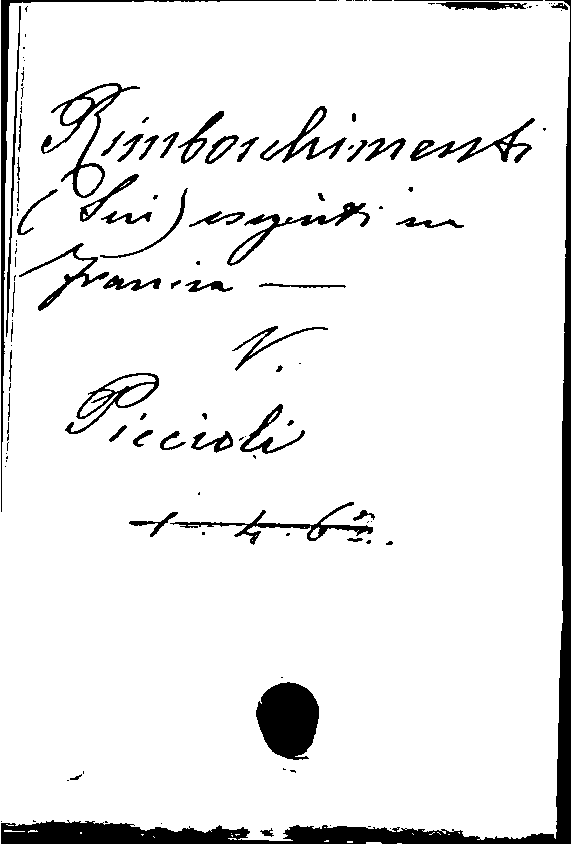 Rimboschimenti
(Sui) eseguiti in
Francia —
V.
Piccioli
1.4.6